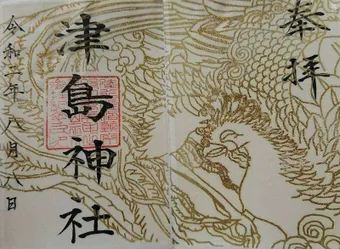 奉拝
津島神社
令和二年八月八日